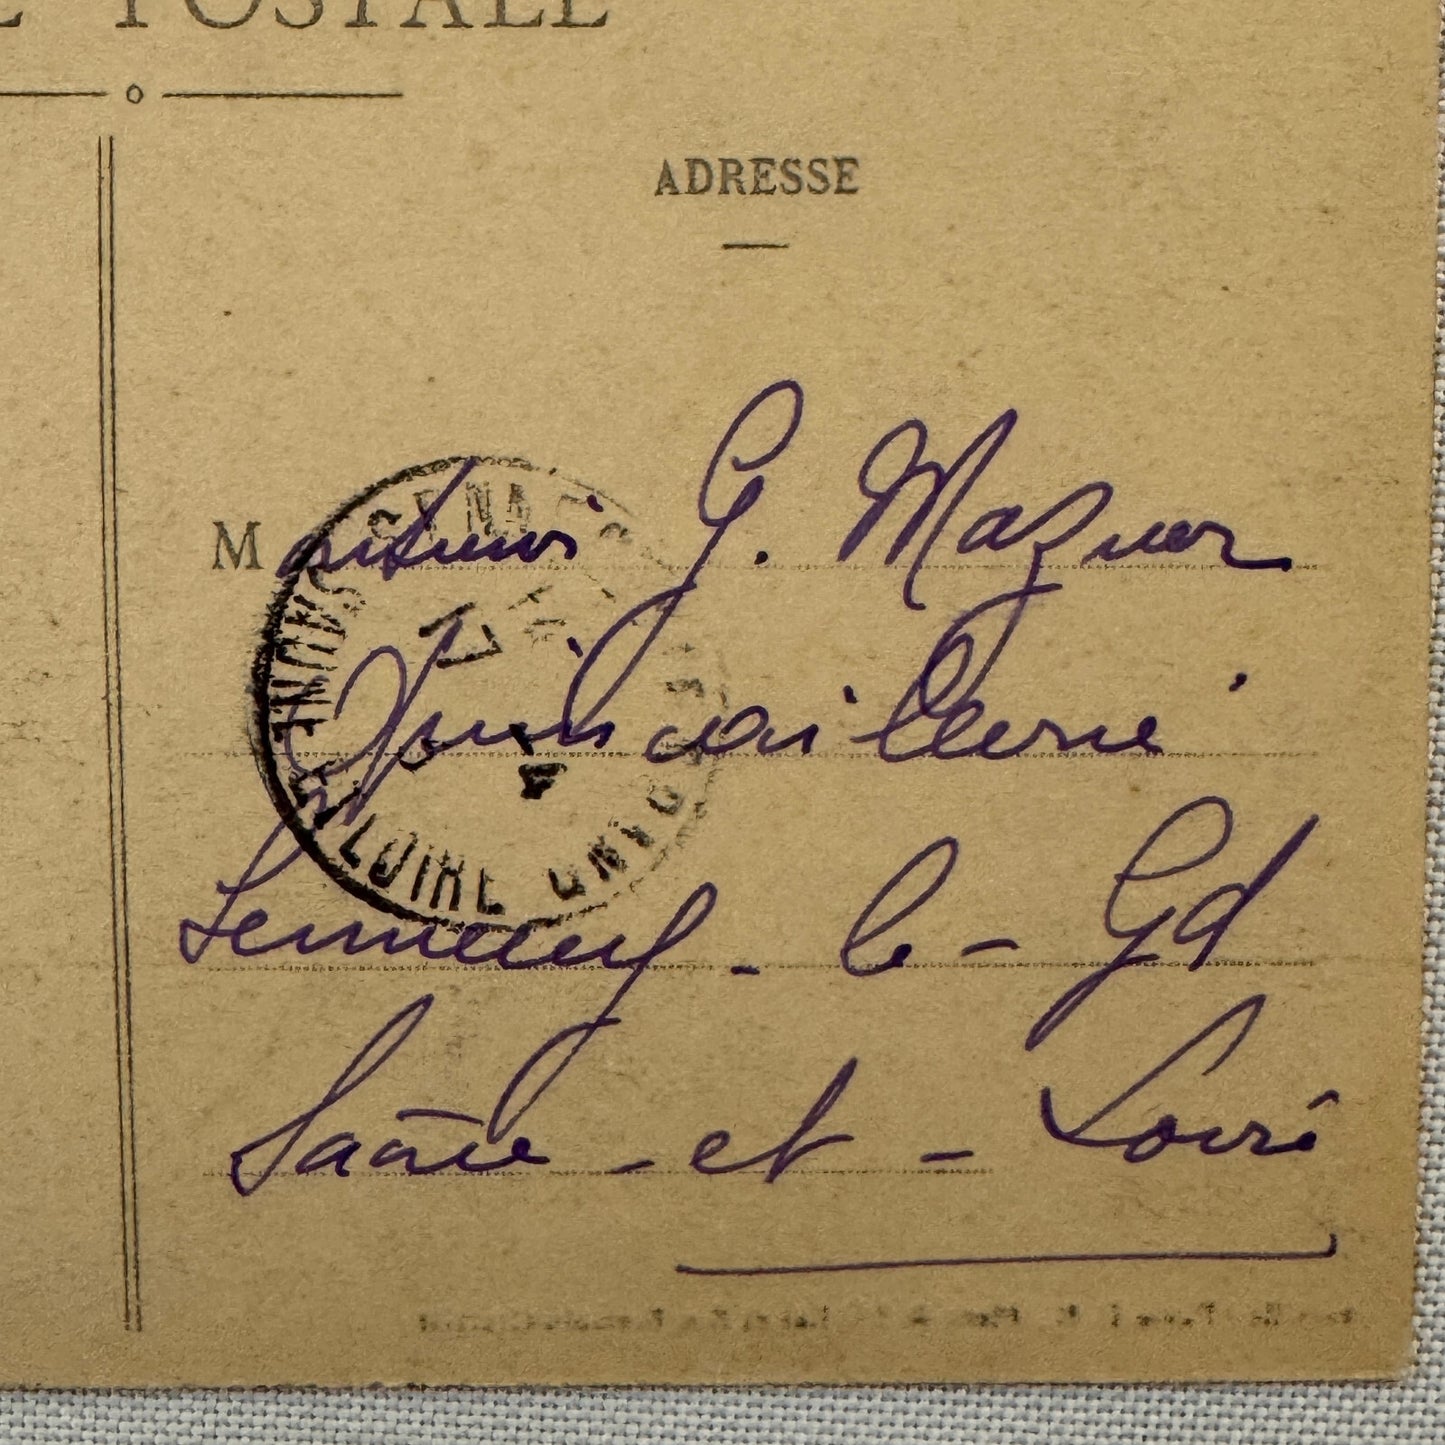 POSTALE
ADRESSE
Monsieur G. Mazuer
Quincaillerie
Sennecey - le - Gd
Saône - et - Loire
LOIRE